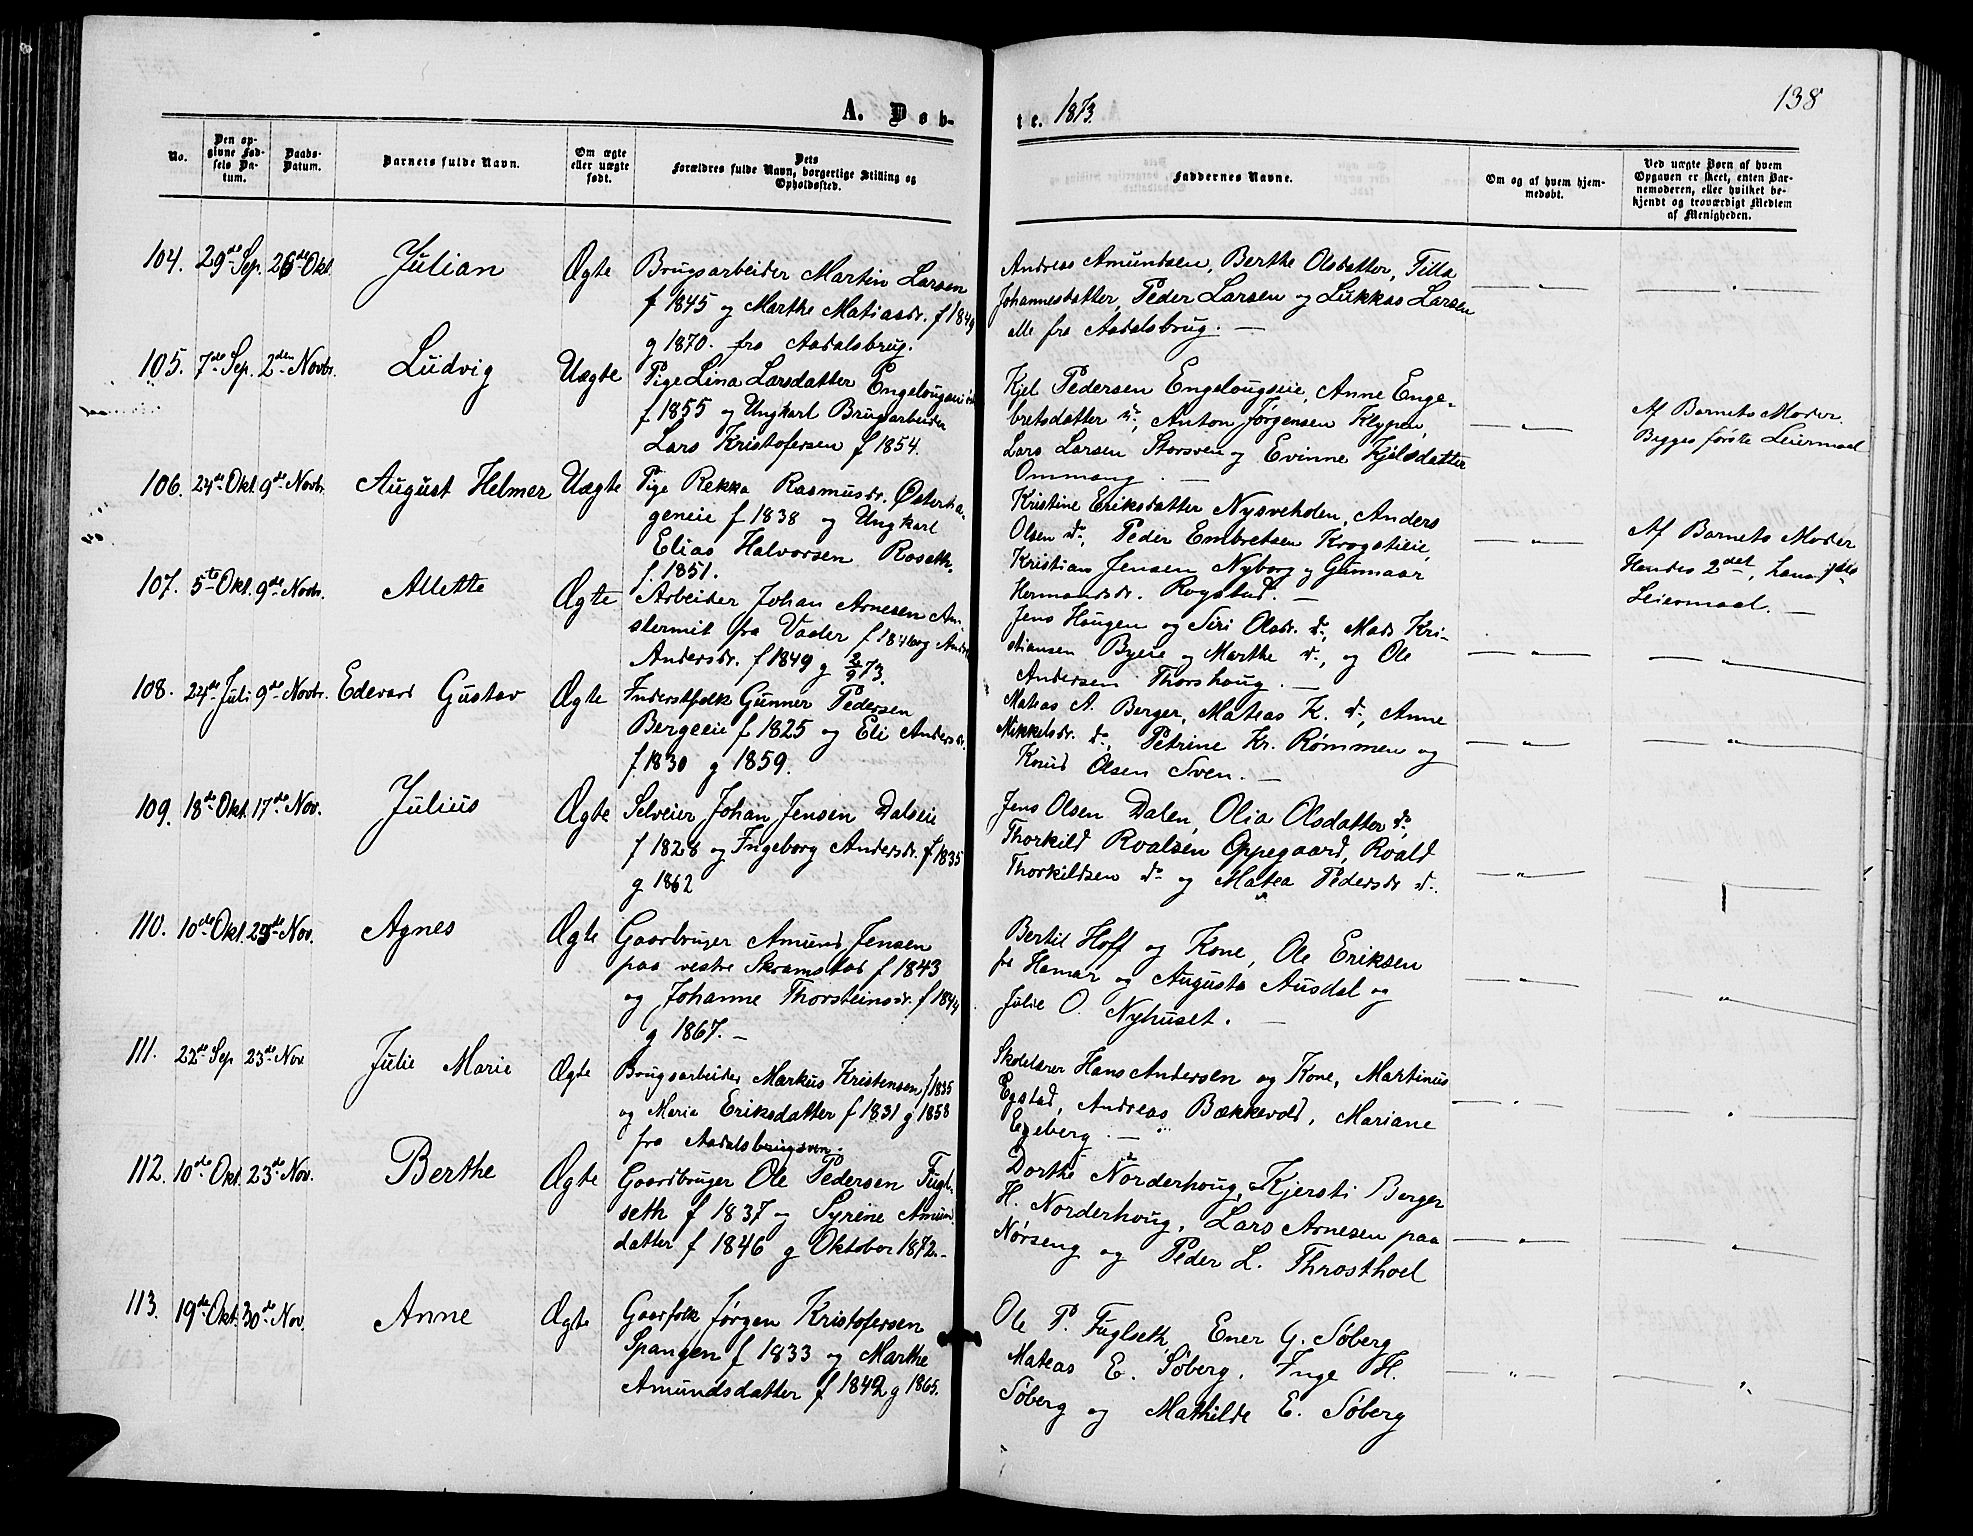 138
A. Døb-
te. 1873.
No.
Den op-
givne Fød-
sels Da-
tum.
Daabs-
Datum.
Barnets fulde Navn.
Om ægte
eller uægte
født.
Dets
Forældres fulde Navn, borgerlige Stilling og
Opholdssted.
Faddernes Navne.
Om og af hvem hjem-
medøbt.
Ved uægte Børn af hvem
Opgaven er skeet, enten Bar-
nemoderen, eller hvilket be-
kjendt og troværdigt Medlem
af Menigheden.
104. 29de Sep. 26de Okt. Julian Ægte
Brugsarbeider Martin Larsen
f 1845 og Marthe Matiasdr. f 1849
g 1870. fra Aadalsbrug.
Andreas Amundsen, Berthe Olsdatter, Tilla
Johannesdatter, Peder Larsen og Lukkas Larsen
alle fra Aadalsbrug. —
105. 7de Sep. 2den Novbr. Ludvig Uægte
Pige Lina Larsdatter
f 1855 og Ungkarl Brugsarbeider
Lars Kristofersen f 1854.
Kjel Pedersen Engelougseie, Anne Enge-
bretsdatter do, Anton Jørgensen Klypen,
Lars Larsen Storsveen og Evinne Kjelsdatter
Ommang. —
Af Barnets Moder.
Begges første Leiermaal
106. 24de Okt. 9de Novbr. August Helmer Uægte
Pige Rekka Rasmusdr. Østerha-
geneie f 1838 og Ungkarl
Elias Halvorsen Roseth.
f. 1851.
Kristine Eriksdatter Nysveholen, Anders
Olsen do, Peder Embretsen Krogstieie,
Kristian Jensen Nyborg og Gunnaar
Hermandsdr. Rogstad. —
Af Barnets Moder
Hendes 2det, hans 1ste
Leiermaal. —
107. 5te Okt. 9de Novbr. Allette Ægte
Arbeider Johan Arnesen
fra Vaaler f 1846 og
Andersdr. f 1849 g 2/9 73.
Jens Haugen og Siri Olsdr. do, Mads Kri-
stiansen Byeie og Marthe do, og Ole
Andersen Thorshoug. —
108. 24de Juli 9de Novbr. Edevard Gustav Ægte
Inderstfolk Gunner Pedersen
Bergeeie f 1825 og Eli Andersdr.
f 1830 g 1859.
Matias A. Berger, Mateas K. do, Anne
Mikkelsdr. do, Petrine Kr. Rømmen og
Knud Olsen Sven. —
109. 18de Okt. 17de Nov. Julius Ægte
Selveier Johan Jensen Dalseie
f 1828 og Ingeborg Andersdr. f 1835
g 1862
Jens Olsen Dalen, Olia Olsdatter do,
Thorkild Roalsen Oppegaard, Roald
Thorkildsen do og Matea Pedersdr do.
110. 10de Okt. 23de Nov. Agnes Ægte
Gaarbruger Amund Jensen
paa vestre Skramstad f 1843
og Johanne Thorsteinsdr. f 1844
g 1867. —
Bertil Hoff og Kone, Ole Eriksen
fra Hamar og Augusta Ausdal og
Julie O. Nyhuset. —
111. 22de Sep 23de Nov Julie Marie Ægte
Brugsarbeider Markus Kristensen f 1835
og Maria Eriksdatter f 1831 g 1858
fra Aadalsbrugsven.
Skolelærer Hans Andersen og Kone, Martinus
Egstad, Andreas Bækkevold, Mariane
Egeberg. —
112. 10de Okt. 23de Nov. Berthe Ægte
Gaardbruger Ole Pedersen Fugl-
seth f 1837 og Syrine Amun-
datter f 1846 g Oktober 1872. —
Dorthe Norderhoug, Kjersti Berger
H. Norderhoug, Lars Arnesen paa
Nørseng og Peder L. Throsthoel
113. 19de Okt. 30de Nov. Anne Ægte
Gaarfolk Jørgen Kristofersen
Spangen f 1833 og Marthe
Amundsdatter f 1842 g 1865.
Ole P. Fuglseth, Ener G. Søberg
Mateas E. Søberg, Inge H.
Søberg og Mathilde E. Søberg